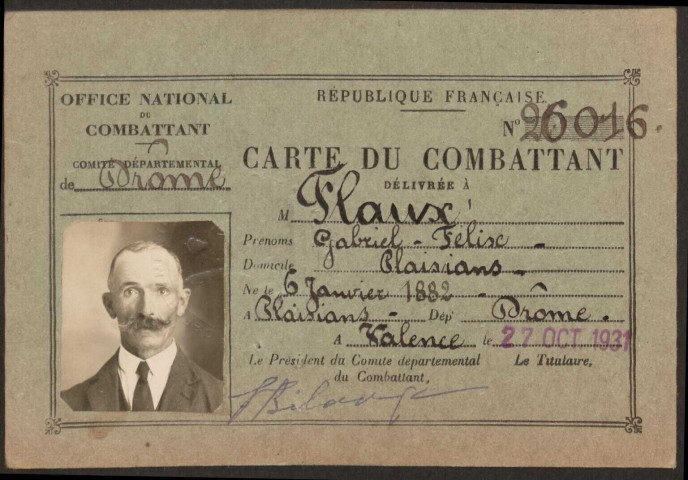 OFFICE NATIONAL
DU
COMBATTANT
COMITÉ DÉPARTEMENTAL
de Drôme
RÉPUBLIQUE FRANÇAISE
N° 26016.
CARTE DU COMBATTANT
DÉLIVRÉE À
M Flaux
Prénoms Gabriel - Félise -
Domicile Plaisians -
Né le 6 Janvier 1882 -
A Plaisians - Dép' Drôme -
A Valence le 27 OCT. 1931
Le Président du Comité départemental
du Combattant,
Le Titulaire,